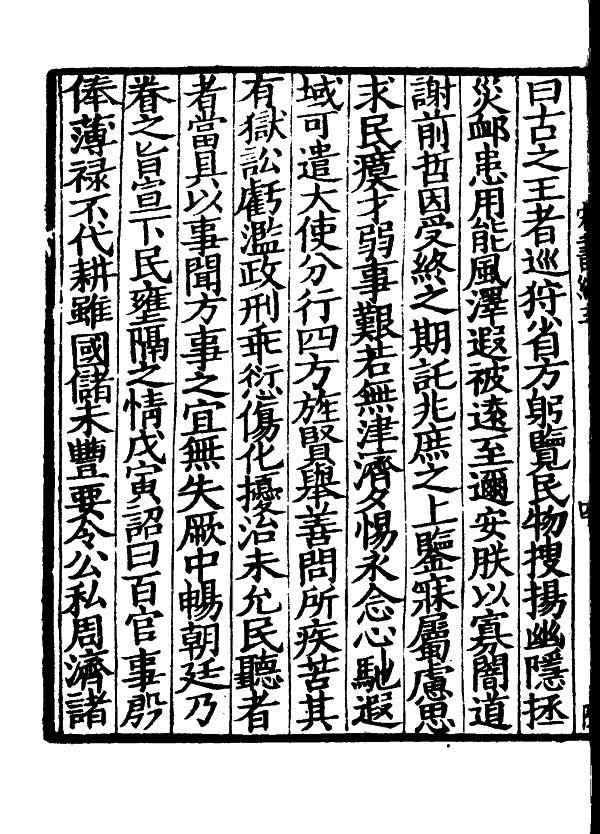 曰古之王者巡狩省方躬覽民物搜揚幽隱拯
災卹患用能風澤遐被遠至邇安朕以寡闇道
謝前哲因受終之期託兆庶之上鑒寐屬慮思
求民瘼才弱事艱若無津濟夕惕永念心馳遐
域可遣大使分行四方旌賢舉善問所疾苦其
有獄訟虧濫政刑乖愆傷化擾治未允民聽者
者當具以事聞方事之宜無失厥中暢朝廷乃
眷之旨宣下民壅隔之情戊寅詔曰百官事殷
俸薄禄不代耕雖國儲未豐要令公私周濟諸